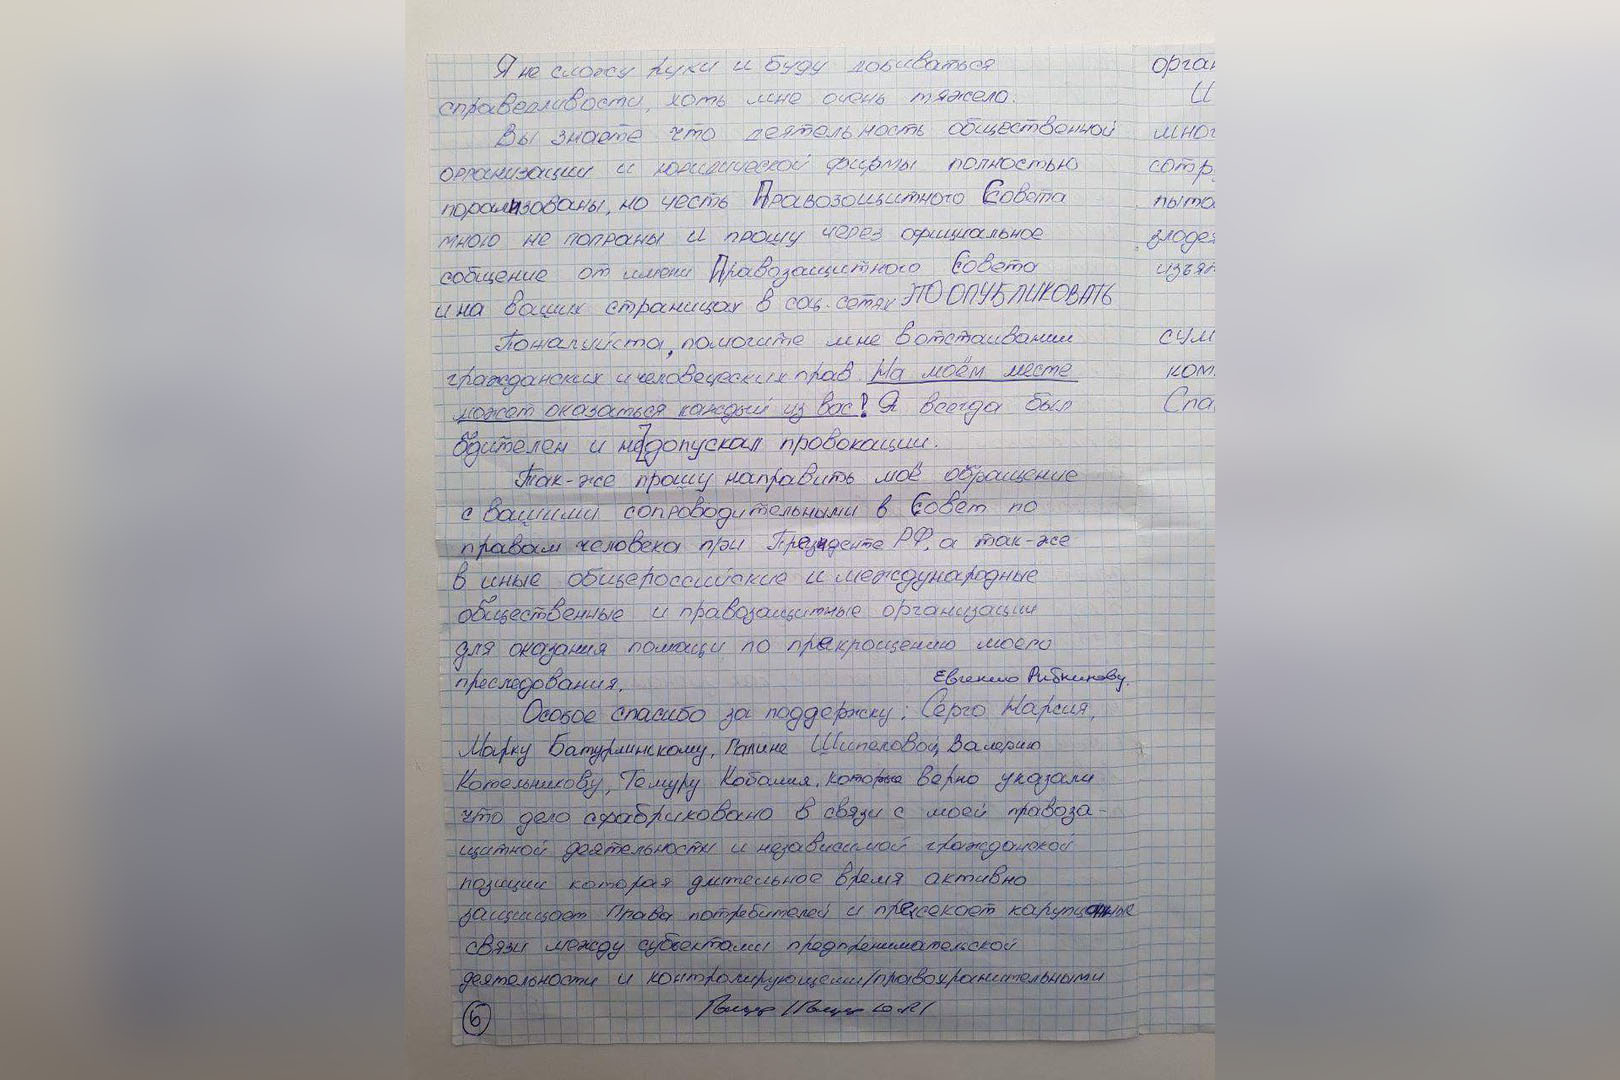 Я не сложу руки и буду добиваться
справедливости, хоть мне очень тяжело.
Вы знаете что деятельность общественной
организации и юридической фирмы полностью
порализованы, но честь Правозащитного Совета
мною не попраны и прошу через официальное
собщение от имени Правозащитного Совета
и на ваших страницах в соц. сетях ПООПУБЛИКОВАТЬ
Пожалуйста, помогите мне в отстаивании
гражданских и человеческих прав. На моём месте
может оказаться каждый из вас! Я всегда был
бдителен и не допускал провокации.
Так-же прошу направить моё обращение
с вашими сопроводительными в Совет по
правам человека при Президенте РФ, а так-же
в иные общероссийские и международные
общественные и правозащитные организации
для оказания помощи по прекрощению моего
преследования.
Евгению Рыбникову,
Особое спасибо за поддержку: Серго Нарсия,
Марку Батурлинскому, Галине Шипеловой, Валерию
Котельникову, Темуру Кобалия, которые верно указали
что дело сфабриковано в связи с моей правоза-
щитной деятельности и независимой гражданской
позиции которая длительное время активно
защищает права потребителей и пресекает
связи между субьектами предпренимательской
деятельности и контролирующеми/правохранительными
6
орган
И
мног
сотр.
пыта
злоде
изъят
сум
ком.
Спа